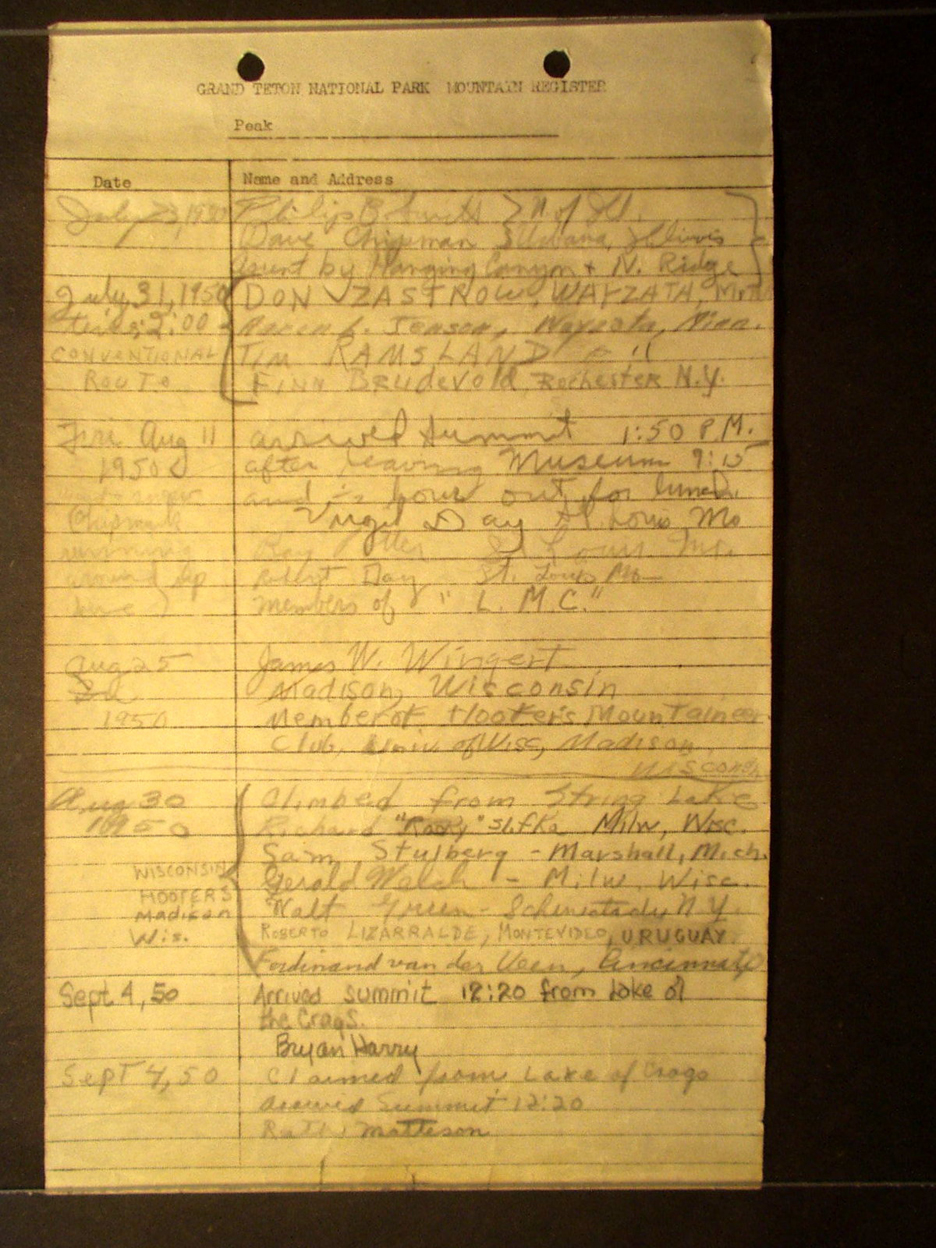 GRAND TETON NATIONAL PARK MOUNTAIN REGISTER
Peak
Date Name and Address
July 23, 1950 Philip B. U. of Ill.
Dave Chipman Urbana, Illinois
by Hanging Canyon + N. Ridge
July 31, 1950 DON ZASTROW, WAYZATA, Minn
time; 2:00 Jenson, Wayzata, Minn.
CONVENTIONAL TIM RAMSLAND " "
ROUTE FINN BRUDEVOLD, ROCHESTER N.Y.
Fri. Aug 11 arrived summit 1:50 P.M.
1950 after leaving Museum 9:15
and ½ hour out for lunch.
Chipmunk Virgil Day St Louis Mo
running Ray St Louis Mo.
around up Robert Day St. Louis Mo
here ) members of "L. M. C."
Aug 25 James W. Wingert
Madison, Wisconsin
1950 Member of Hoofer's Mountaineer
Club, Univ. of Wisc, Madison,
Wisconsin
Aug 30 Climbed from String Lake
1950 Richard "Rocky" Slfka Milw, Wisc.
Sam Stulberg - Marshall, Mich.
WISCONSIN Gerald Walch - Milw. Wisc.
HOOFERS
Madison Walt Green - Schenectady N.Y.
Wis. ROBERTO LIZARRALDE, MONTEVIDEO, URUGUAY
Ferdinand van der Veen, Cincinnati
Sept 4, 50 Arrived summit 12:20 from Lake of
the Crags.
Bryan Harry
Sept 4, 50 Claimed from Lake of Crags
Arrived Summit 12:20
Matteson